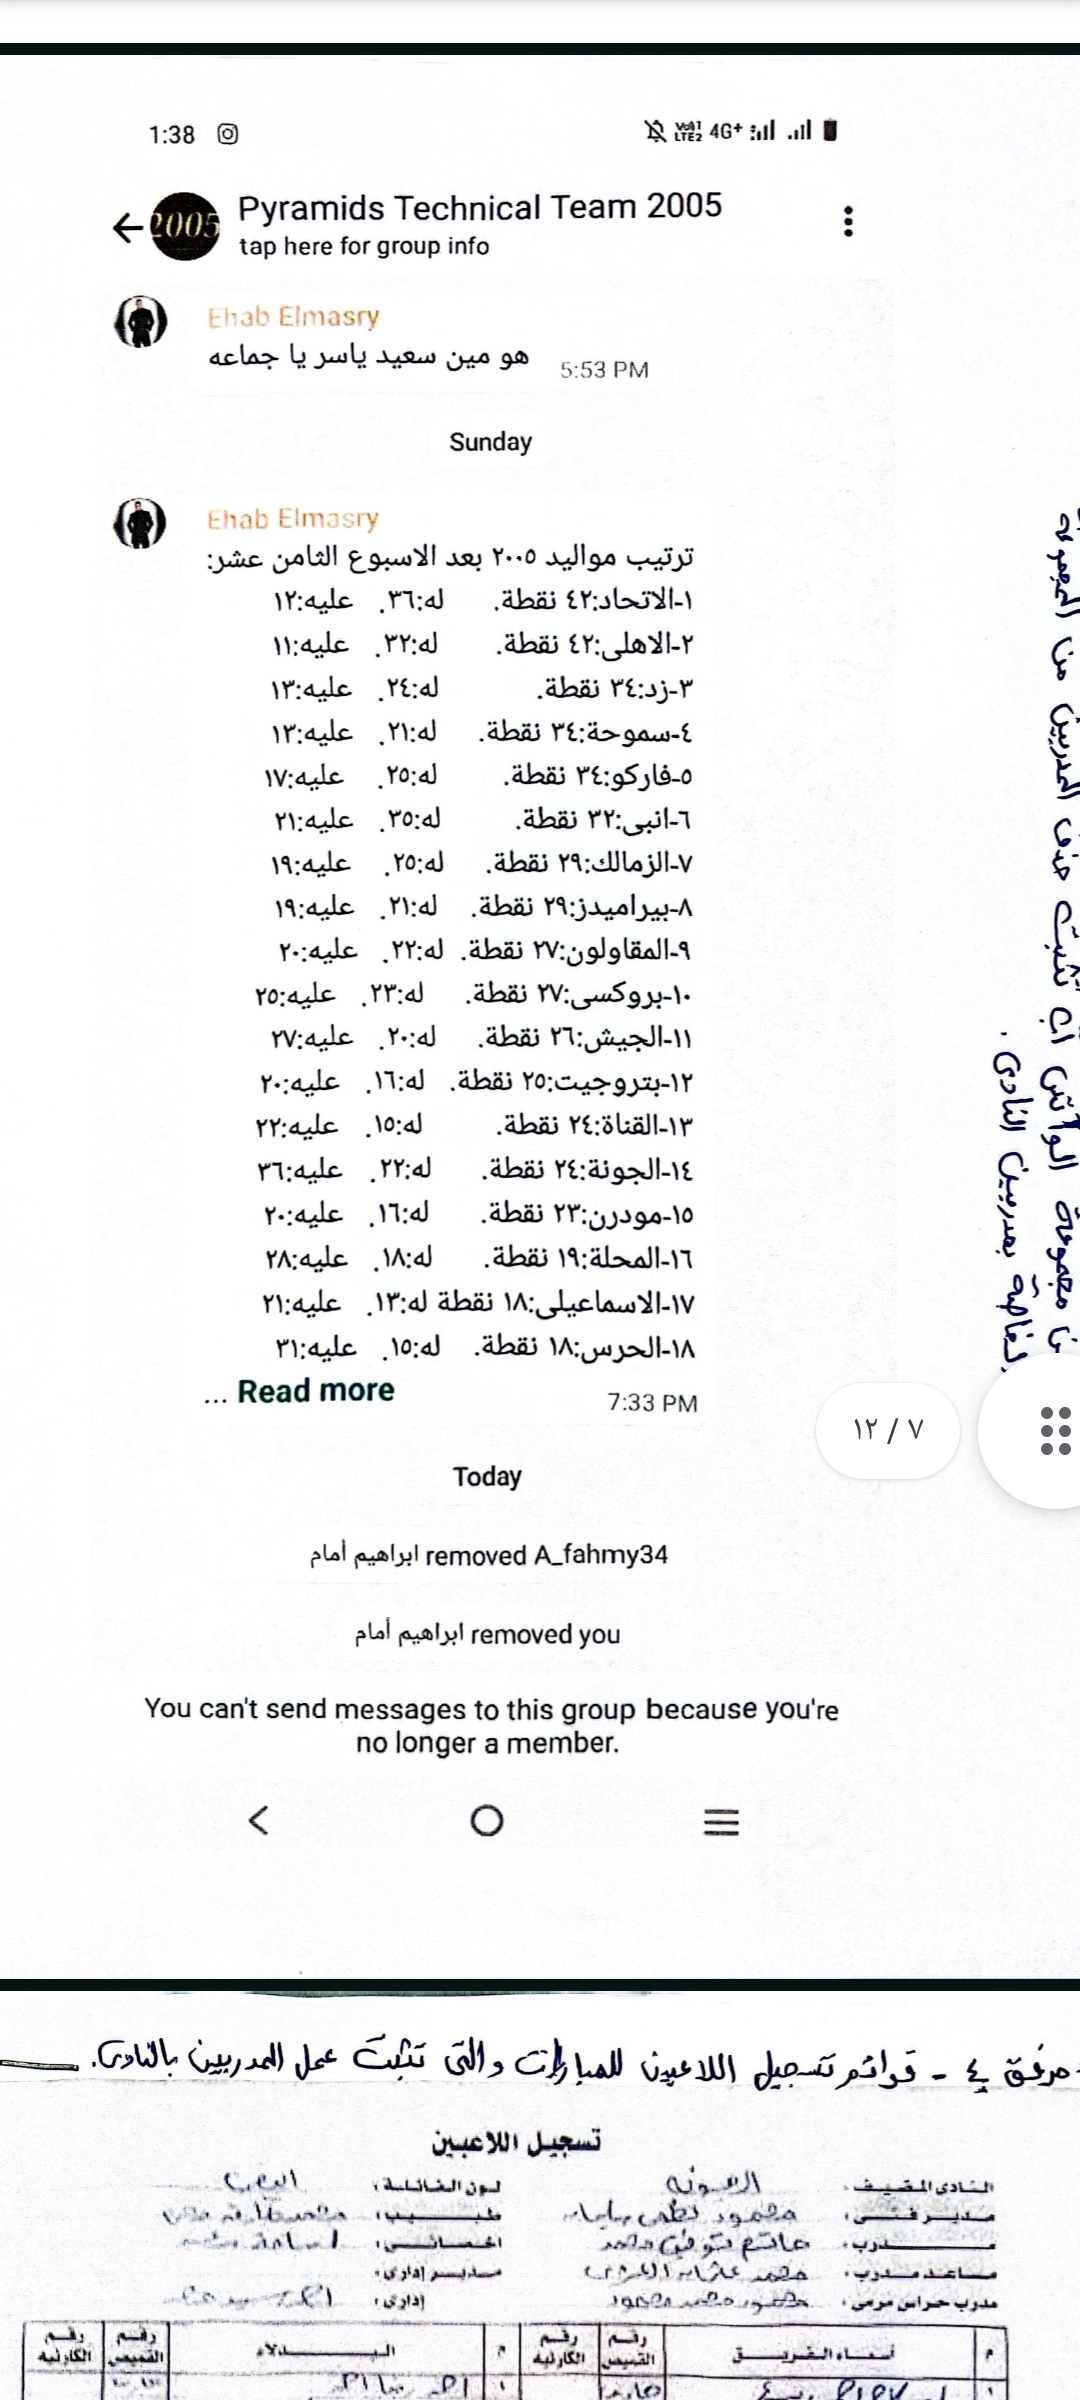 1:38
4G+
Pyramids Technical Team 2005
tap here for group info
2005
Ehab Elmasry
هو مين سعيد ياسر يا جماعه
5:53 PM
Sunday
Ehab Elmasry
ترتيب مواليد ٢٠٠٥ بعد الاسبوع الثامن عشر:
١-الاتحاد:٤٢ نقطة. له:٣٦. عليه:١٢
٢-الاهلى:٤٢ نقطة. له:٣٢. عليه:١١
٣-زد:٣٤ نقطة. له:٢٤. عليه:١٣
٤-سموحة:٣٤ نقطة. له:٢١. عليه:١٣
٥-فاركو:٣٤ نقطة. له:٢٥. عليه:١٧
٦-انبى:٣٢ نقطة. له:٣٥. عليه:٢١
٧-الزمالك:٢٩ نقطة. له:٢٥. عليه:١٩
٨-بيراميدز:٢٩ نقطة. له:٢١. عليه:١٩
٩-المقاولون:٢٧ نقطة. له:٢٢. عليه:٢٠
١٠-بروكسى:٢٧ نقطة. له:٢٣. عليه:٢٥
١١-الجيش:٢٦ نقطة. له:٢٠. عليه:٢٧
١٢-بتروجيت:٢٥ نقطة. له:١٦. عليه:٢٠
١٣-القناة:٢٤ نقطة. له:١٥. عليه:٢٢
١٤-الجونة:٢٤ نقطة. له:٢٢. عليه:٣٦
١٥-مودرن:٢٣ نقطة. له:١٦. عليه:٢٠
١٦-المحلة:١٩ نقطة. له:١٨. عليه:٢٨
١٧-الاسماعيلى:١٨ نقطة له:١٣. عليه:٢١
١٨-الحرس:١٨ نقطة. له:١٥. عليه:٣١
... Read more
7:33 PM
Today
ابراهيم أمام removed A_fahmy34
ابراهيم أمام removed you
You can't send messages to this group because you're
no longer a member.
تثبت حذف المدربين من المجموعة
مجموعة الواتس اب
بمدربين النادى.
٧ / ١٢
مرفق ٤ - قوائم تسجيل اللاعبين للمباريات والتى تثبت عمل المدربين بالنادى.
تسجيل اللاعبين
النادى المضيف: الجونه لون الفانلة:
مديـر فنـى: محمود طبـيـب:
مدرب: محمد اخصائى:
مساعد مدرب: محمد مديـر إدارى:
مدرب حراس مرمى: محمود محمد محمود إدارى:
م أسماء الفريق رقم القميص رقم الكارنيه م البـدلاء رقم القميص رقم الكارنيه
١ ١